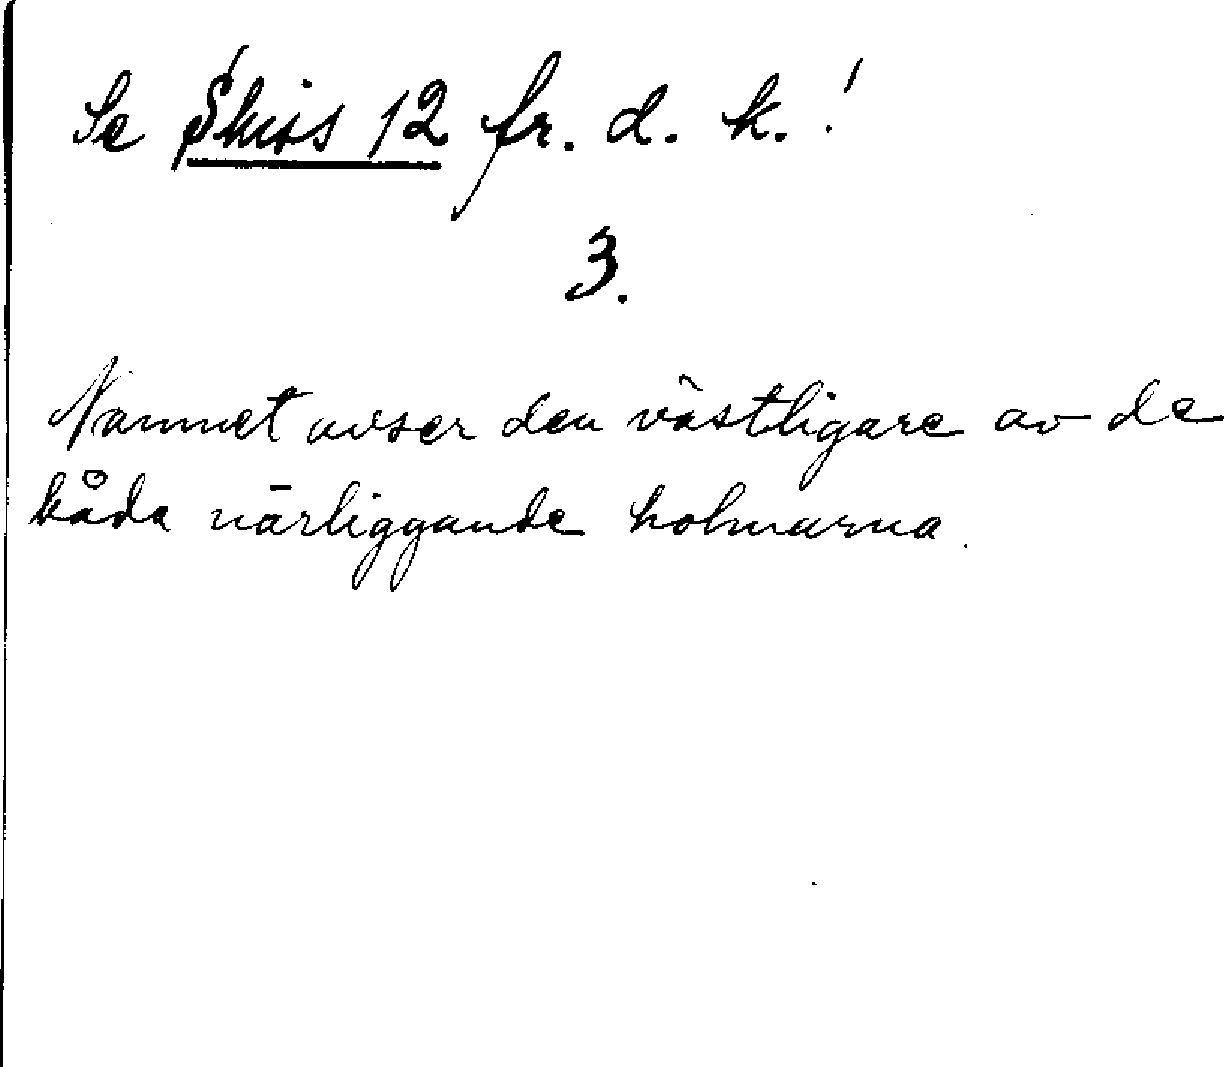 Se Skiss 12 fr. d. k.!
3.
Namnet avser den västligare av de
båda närliggande holmarna.